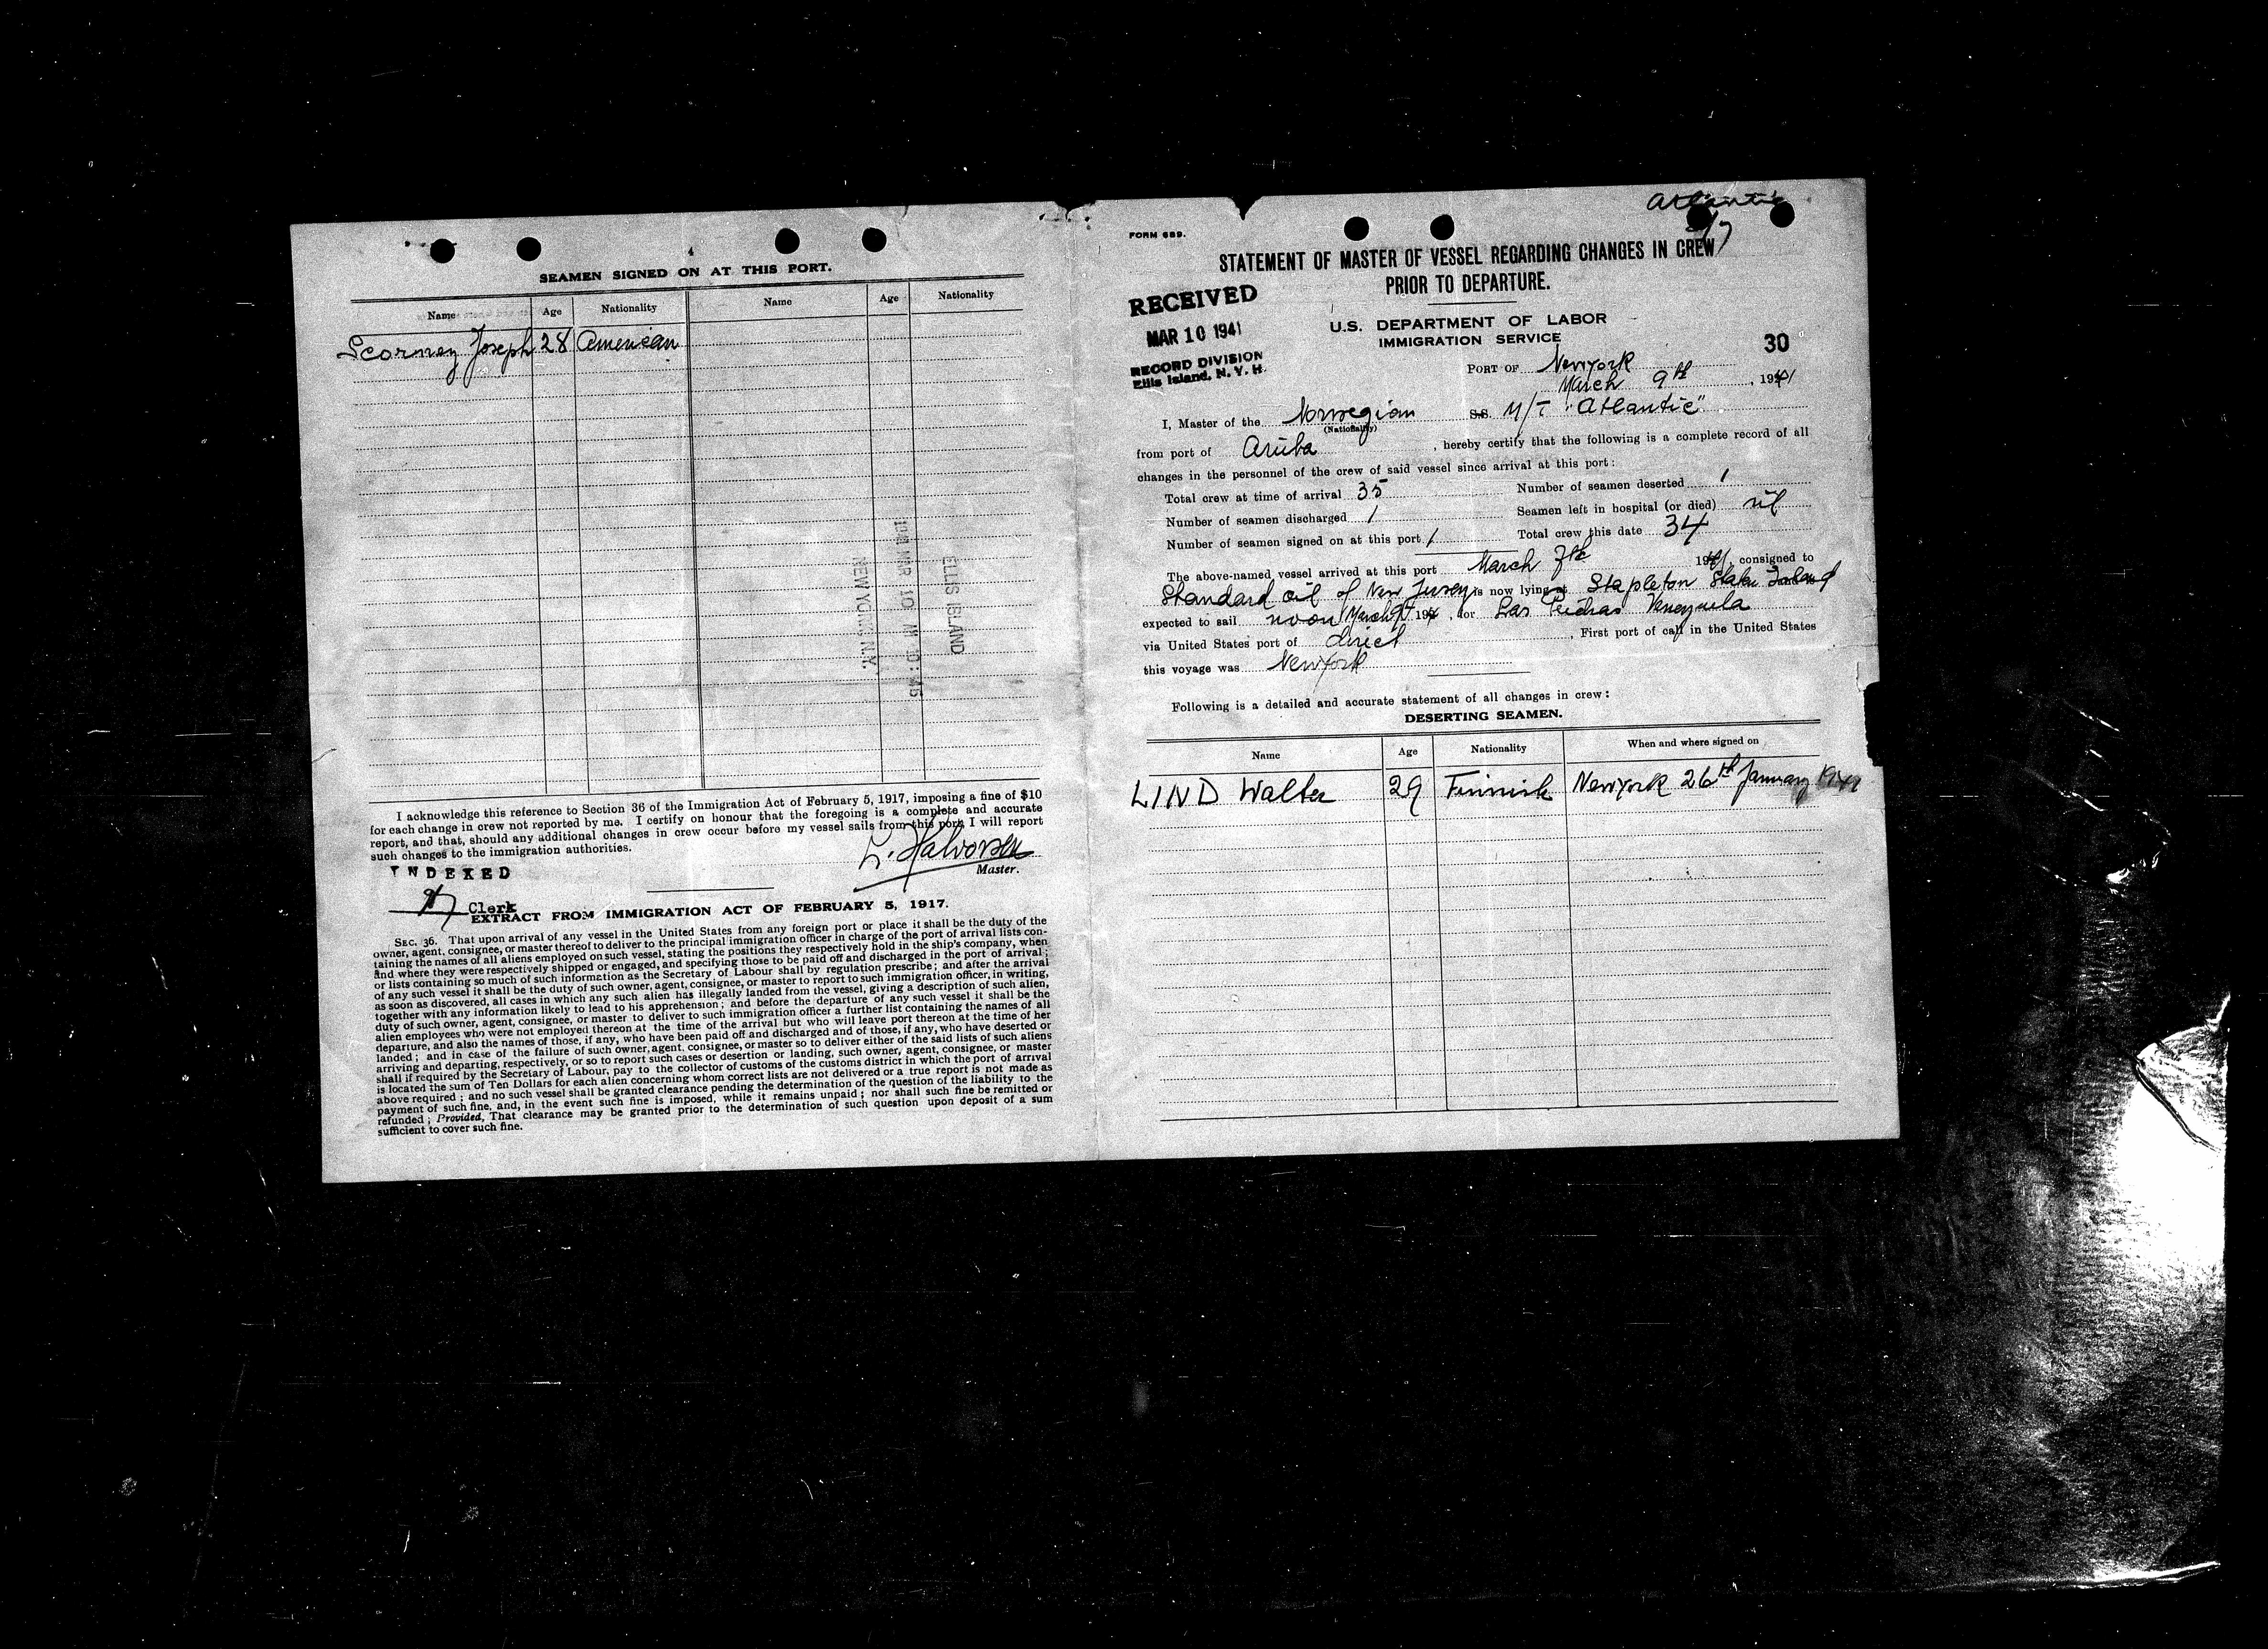 4
SEAMEN SIGNED ON AT THIS PORT.
Name Age Nationality Name Age Nationality
Joseph 28 American
ELLIS ISLAND
1941 MAR 10 AM 10:45
NEW YORK, N.Y.
I acknowledge this reference to Section 36 of the Immigration Act of February 5, 1917, imposing a fine of $10
for each change in crew not reported by me. I certify on honour that the foregoing is a complete and accurate
report, and that, should any additional changes in crew occur before my vessel sails from this port, I will report
such changes to the immigration authorities.
L. Halvorsen
Master.
INDEXED
Clerk
EXTRACT FROM IMMIGRATION ACT OF FEBRUARY 5, 1917.
SEC. 36. That upon arrival of any vessel in the United States from any foreign port or place it shall be the duty of the
owner, agent, consignee, or master thereof to deliver to the principal immigration officer in charge of the port of arrival lists con-
taining the names of all aliens employed on such vessel, stating the positions they respectively hold in the ship's company, when
and where they were respectively shipped or engaged, and specifying those to be paid off and discharged in the port of arrival;
or lists containing so much of such information as the Secretary of Labour shall by regulation prescribe; and after the arrival
of any such vessel it shall be the duty of such owner, agent, consignee, or master to report to such immigration officer, in writing,
as soon as discovered, all cases in which any such alien has illegally landed from the vessel, giving a description of such alien,
together with any information likely to lead to his apprehension; and before the departure of any such vessel it shall be the
duty of such owner, agent, consignee, or master to deliver to such immigration officer a further list containing the names of all
alien employees who were not employed thereon at the time of the arrival but who will leave port thereon at the time of her
departure, and also the names of those, if any, who have been paid off and discharged and of those, if any, who have deserted or
landed; and in case of the failure of such owner, agent, consignee, or master so to deliver either of the said lists of such aliens
arriving and departing, respectively, or so to report such cases or desertion or landing, such owner, agent, consignee, or master
shall if required by the Secretary of Labour, pay to the collector of customs of the customs district in which the port of arrival
is located the sum of Ten Dollars for each alien concerning whom correct lists are not delivered or a true report is not made as
above required; and no such vessel shall be granted clearance pending the determination of the question of the liability to the
payment of such fine, and, in the event such fine is imposed, while it remains unpaid; nor shall such fine be remitted or
refunded; Provided, That clearance may be granted prior to the determination of such question upon deposit of a sum
sufficient to cover such fine.
Atlantic
FORM 689.
STATEMENT OF MASTER OF VESSEL REGARDING CHANGES IN CREW
PRIOR TO DEPARTURE.
RECEIVED
MAR 10 1941
RECORD DIVISION
Ellis Island, N. Y. H.
U.S. DEPARTMENT OF LABOR
IMMIGRATION SERVICE
30
PORT OF New York
March 9th, 1941
I, Master of the Norwegian S.S. M/T "Atlantic"
(Nationality)
from port of Aruba, hereby certify that the following is a complete record of all
changes in the personnel of the crew of said vessel since arrival at this port:
Total crew at time of arrival 35 Number of seamen deserted 1
Number of seamen discharged 1 Seamen left in hospital (or died) nil
Number of seamen signed on at this port 1 Total crew this date 34
The above-named vessel arrived at this port March 7th 1941 consigned to
Standard oil of New Jersey is now lying at Stapleton Staten Island
expected to sail noon March 9th 194, for Las Piedras Venezuela
via United States port of direct, First port of call in the United States
this voyage was New York
Following is a detailed and accurate statement of all changes in crew:
DESERTING SEAMEN.
Name Age Nationality When and where signed on
LIND Walter 29 Finnish New York 26th January 1941